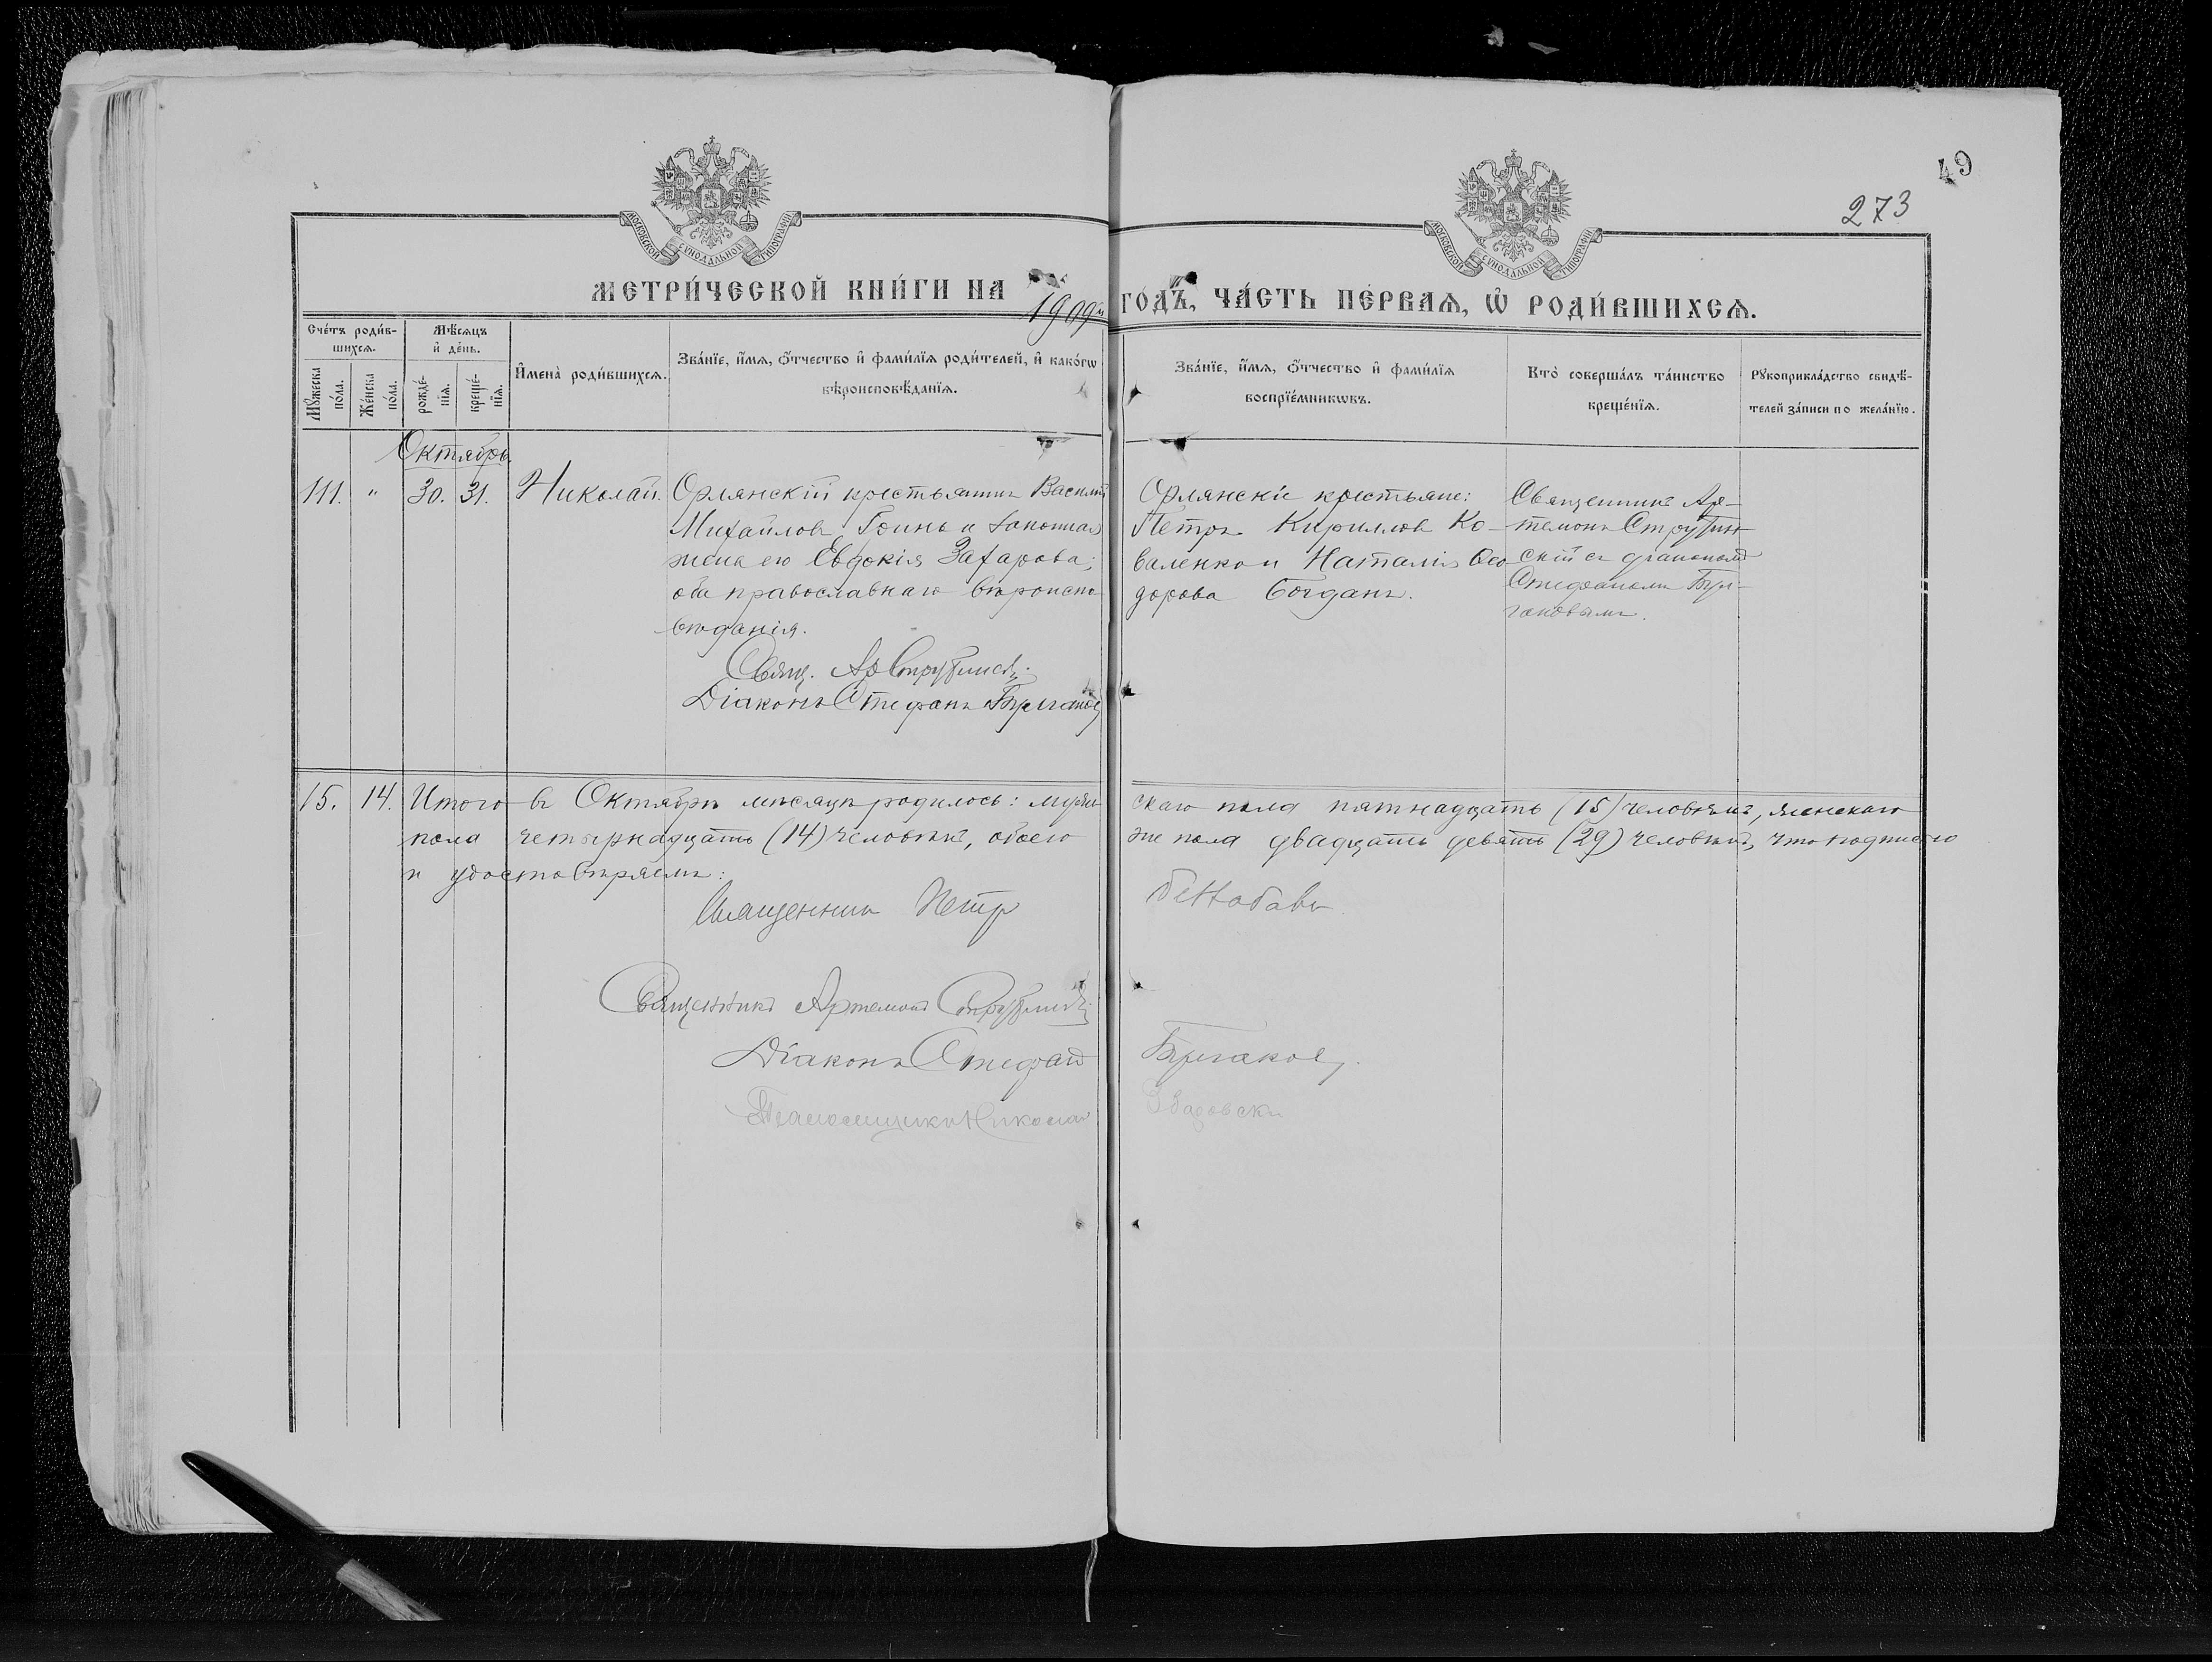 49
273
МОСКОВСКОЙ СУНОДАЛЬНОЙ ТИПОГРАФІИ
МОСКОВСКОЙ СУНОДАЛЬНОЙ ТИПОГРАФІИ
МЕТРИ́ЧЕСКОЙ КНИ́ГИ НА 1909й ГОДЪ, ЧА́СТЬ ПЕ́РВАЯ, Ѡ РОДИ́ВШИХСЯ.
Сче́тъ роди́в-
шихся.
Мѣ́сяцъ
и҆ де́нь.
Мꙋ́жеска по́ла.
Же́нска по́ла.
рожде́-нїя.
креще́-нїя.
И҆мена̀ роди́вшихся.
Зва́нїе, и҆́мя, ѻ҆́тчество и҆ фами́лїя роди́телей, и҆ како́гѡ
вѣроисповѣ́данїя.
Зва́нїе, и҆́мя, ѻ҆́тчество и҆ фами́лїя
воспрїе́мникѡвъ.
Кто̀ соверша́лъ та́инство
креще́нїя.
Рꙋкоприкла́дство свидѣ́-
телей за́писи по жела́нїю.
Октябрь.
111. " 30. 31. Николай.
Орлянскій крестьянинъ Василій
Михайловъ Гринь и законная
жена его Евдокія Захарова;
оба православнаго вѣроиспо
вѣданія.
Свящ. Ар Струтинскій
Діаконъ Стефанъ Булгаковъ
Орлянскіе крестьяне:
Петръ Кирилловъ Ко-
валенко и Наталія Ѳео
дорова Богданъ.
Священникъ Ар-
темонъ Струтин
скій съ діакономъ
Стефаномъ Бул-
гаковымъ.
15. 14. Итого въ Октябрѣ мѣсяцѣ родилось: муже скаго пола пятнадцать (15) человѣкъ, женскаго
пола четырнадцать (14) человѣкъ, обоего же пола двадцать девять (29) человѣкъ, что подписью
и удостовѣряемъ:
Священникъ Петръ
Священникъ Артемонъ Струтинскій
Діаконъ Стефанъ Булгаковъ
Псаломщикъ Николай